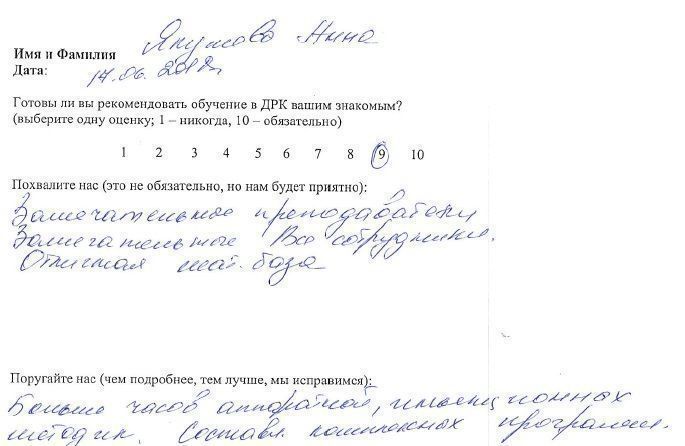 Имя и Фамилия Якушова Нина
Дата: 17.06.2012г.
Готовы ли вы рекомендовать обучение в ДРК вашим знакомым?
(выберите одну оценку; 1 – никогда, 10 – обязательно)
1 2 3 4 5 6 7 8 9 10
Похвалите нас (это не обязательно, но нам будет приятно):
Замечательные преподаватели
Замечательные Все сотрудники.
Отличная мат. база
Поругайте нас (чем подробнее, тем лучше, мы исправимся):
Больше часов аппаратной, инъекционных
методик. Составл. комплексных программ.